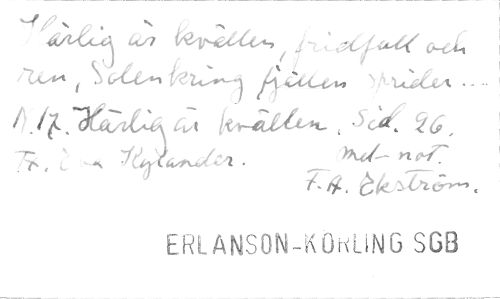 Härlig är kvällen, fridfull och
ren, Solen kring fjällen sprider....
N.17. Härlig är kvällen. Sid. 26.
Fr. Eva Kylander. mel-not.
F.A. Ekström.
ERLANSON-KÖRLING SGB